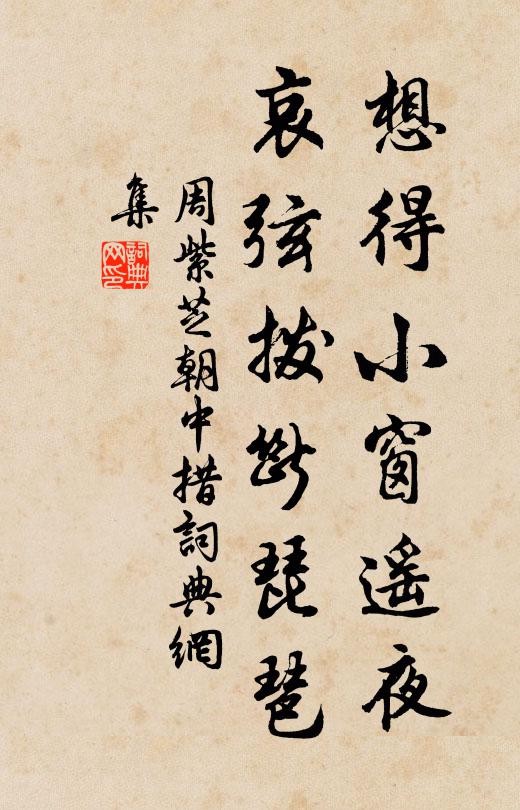 想得小窗遥夜
哀弦拨断琵琶
周紫芝朝中措詞典網
集
詞典網印